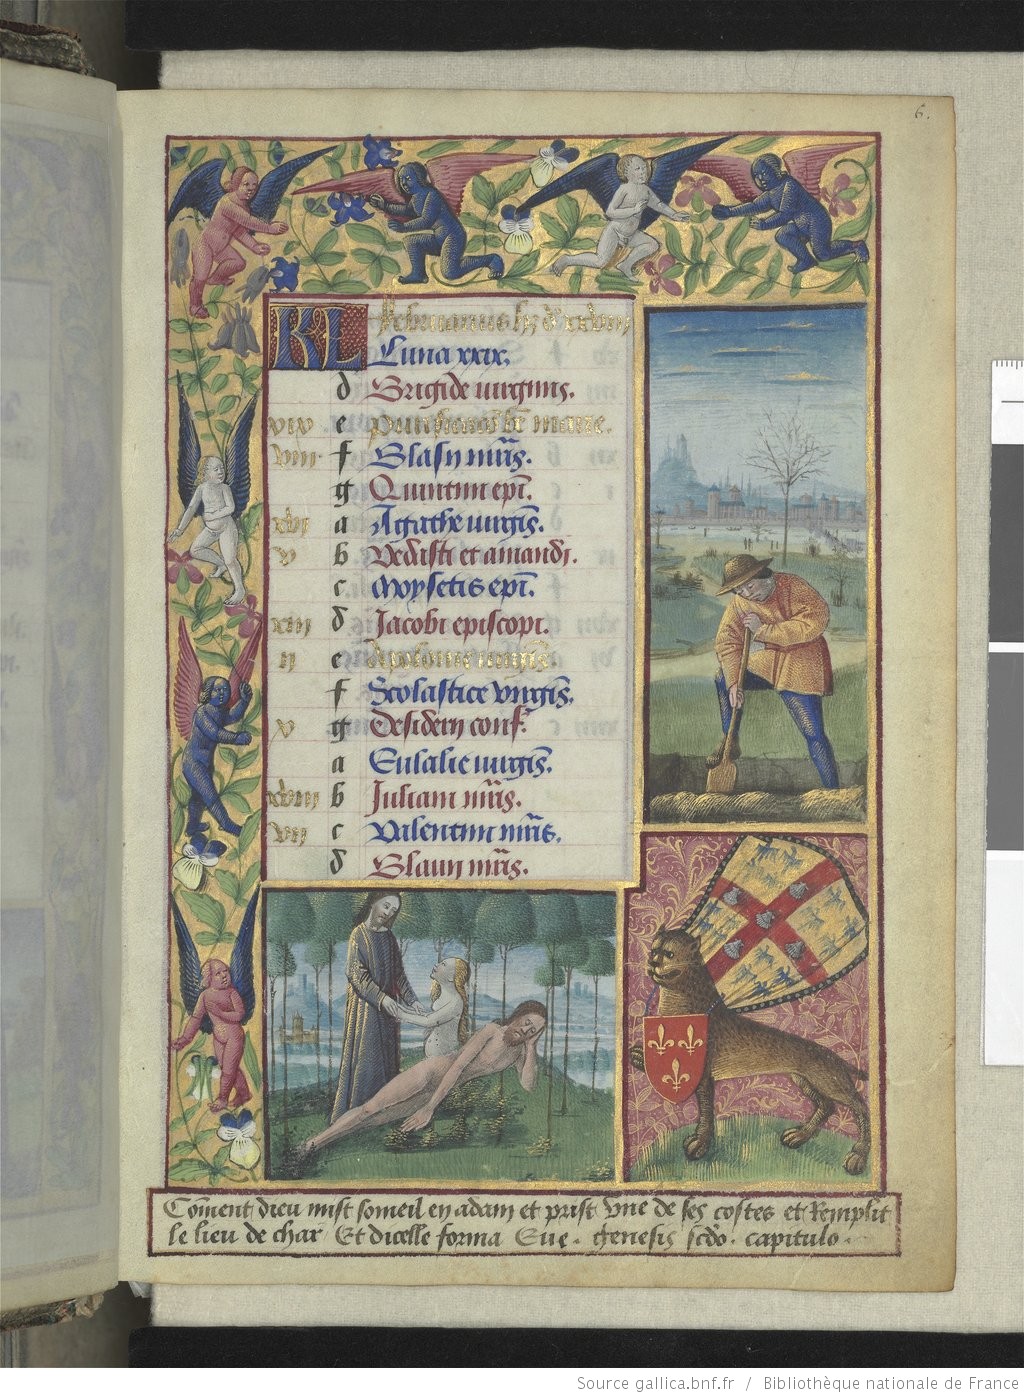 6.
KL Februarius hȝ d. xxviij
Luna xxix.
d Brigide uirginis.
xiv e Purificatio be marie.
viii. f Blasij mris.
g Quintini epi.
xvi a Agathe uirgis.
v b Vedasti et amandi.
c Moysetis epi.
xiii d Jacobi episcopi.
ii e Apolonie uirgis.
f Scolastice virgis.
v g Desiderij conf.
a Eulalie uirgis.
xviii b Juliani mris.
vii c Valentini mris.
d Blauij mris.
Coment dieu mist someil en adam et prist vne de ses costes et Remplit
le lieu de char Et dicelle forma Eue. genesis scdo. capitulo.
Source gallica.bnf.fr / Bibliothèque nationale de France